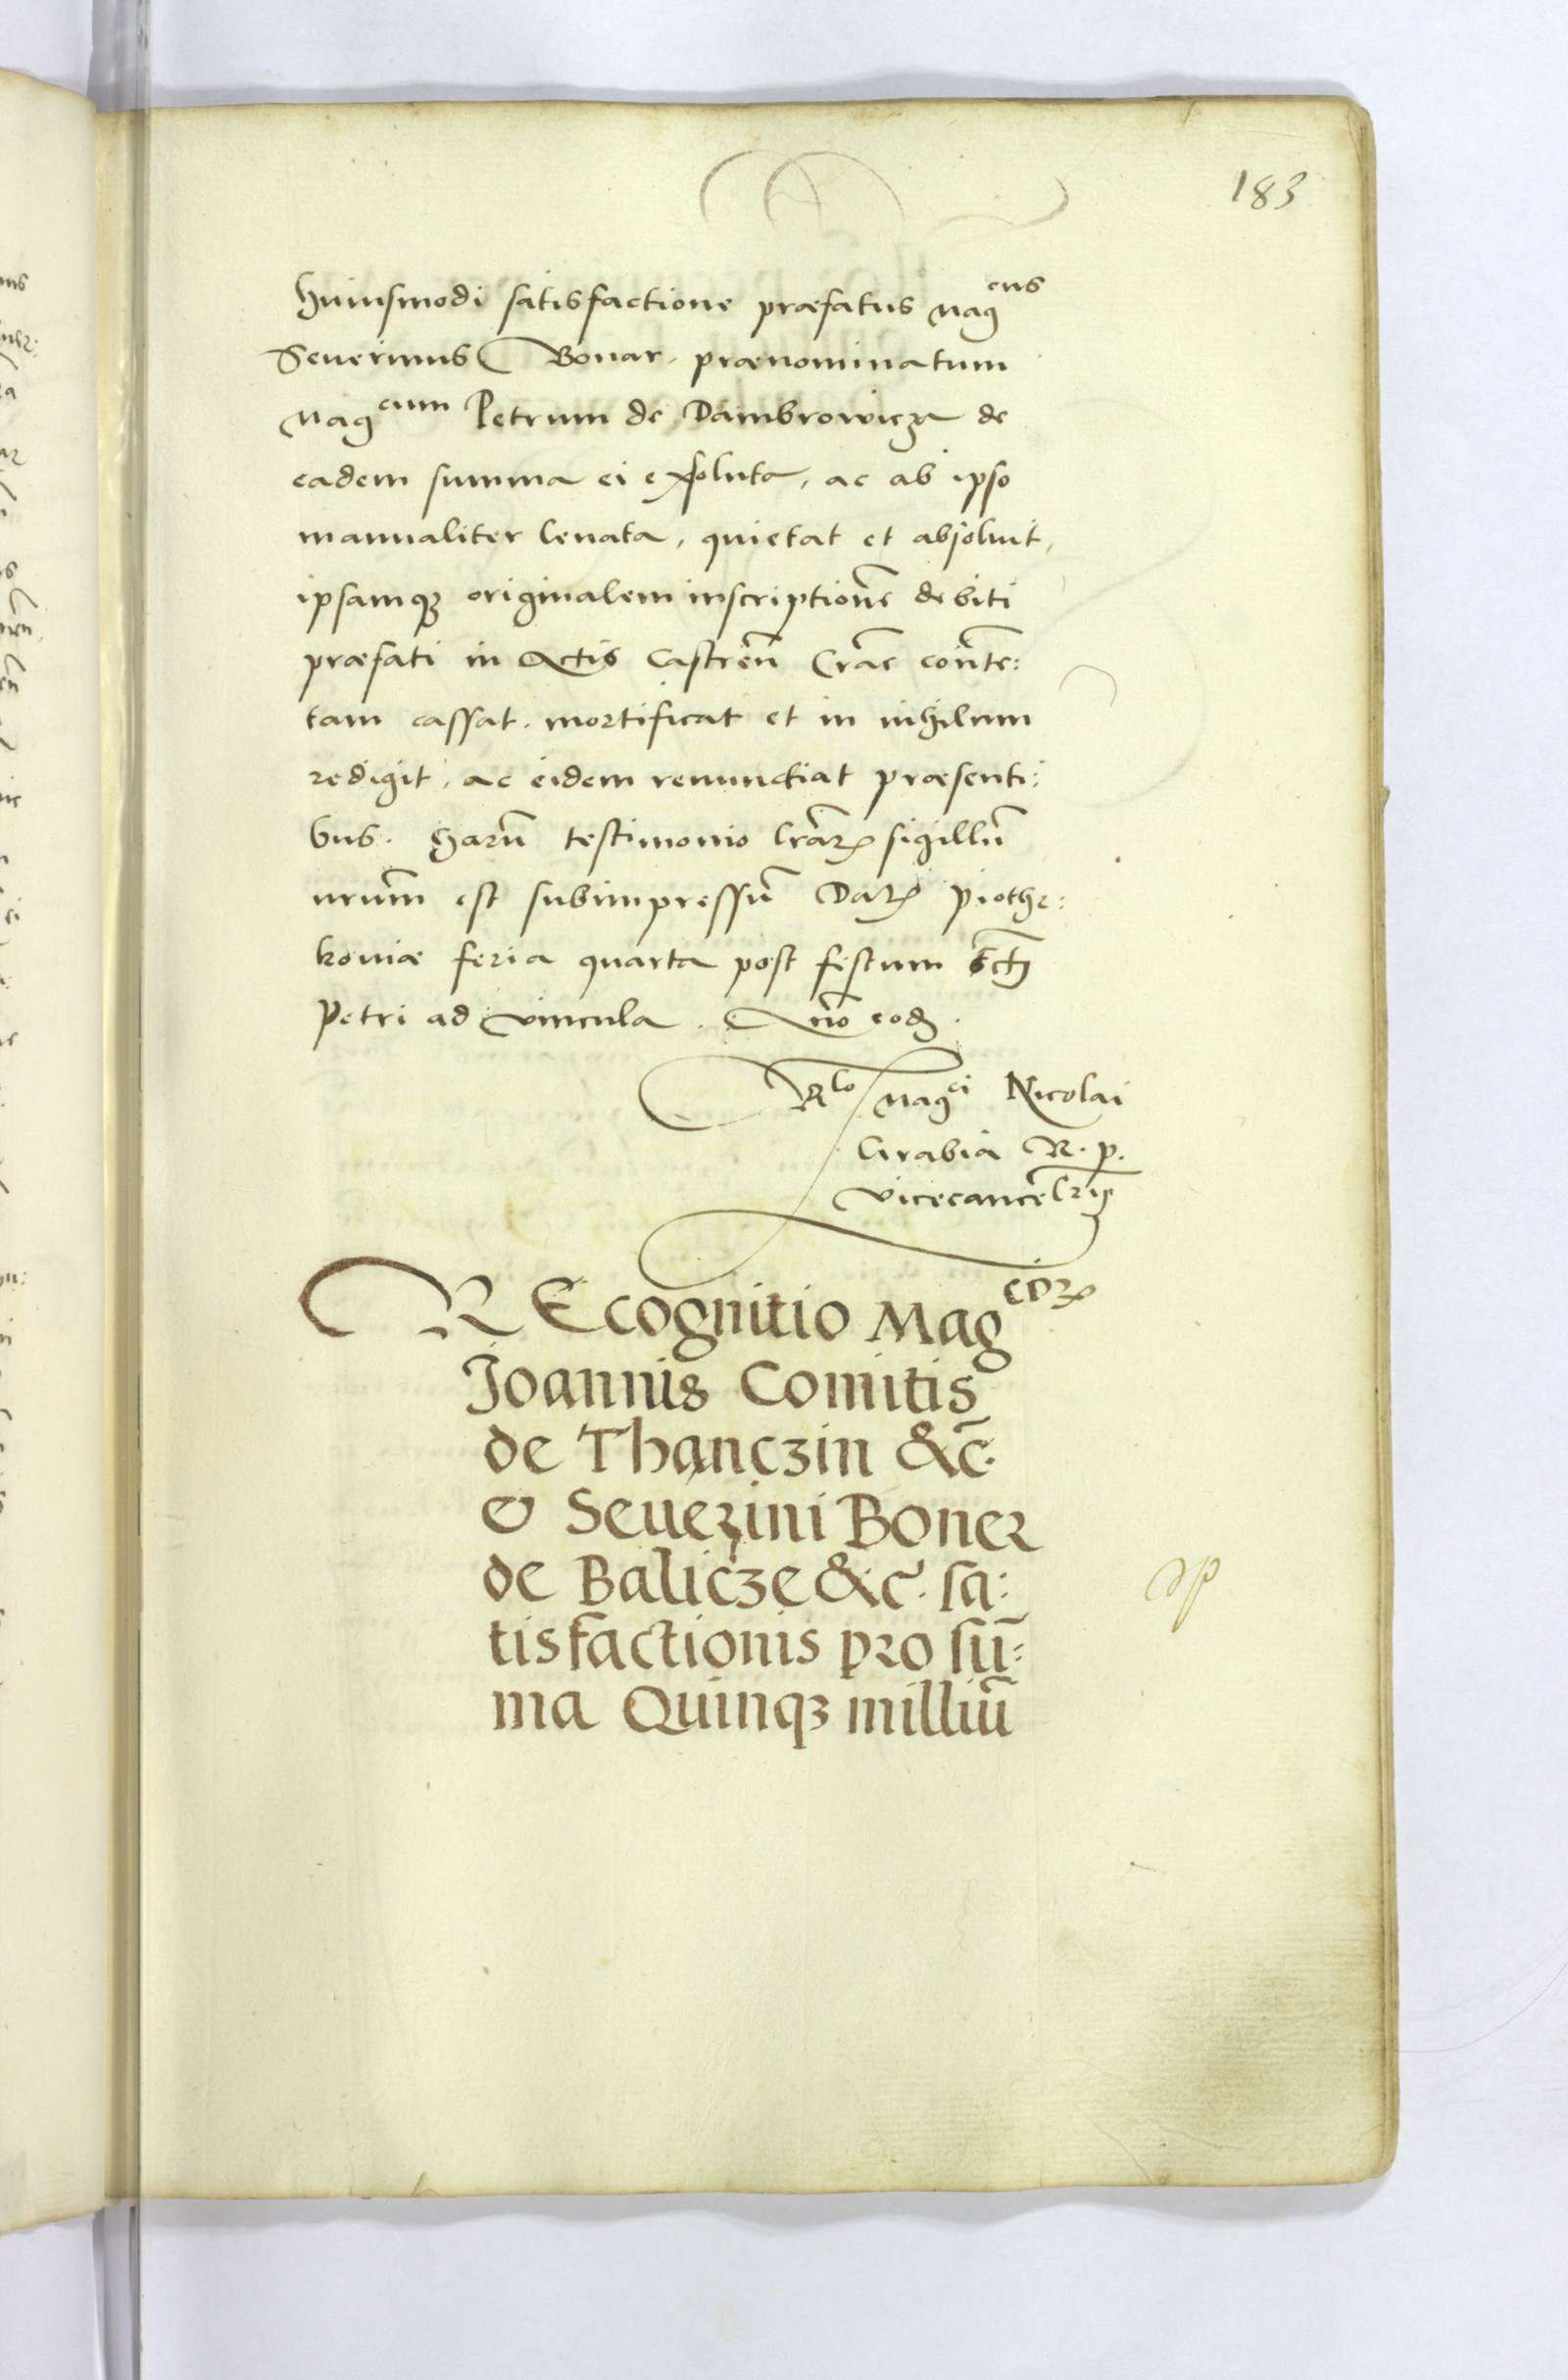 183
huiusmodi satisfactione præfatus Mag^cus
Seuerinus Bonar. prænominatum
Mag^cum Petrum de Dambrowicza de
eadem summa ei exsoluta, ac ab ipso
manualiter leuata, quietat et absoluit,
ipsamq3 originalem inscriptionē debiti
præfati in Actis Castreñ Craĉ conte:
tam cassat. mortificat et in nihilum
redigit, ac eidem renunctiat præsenti:
bus. harū testimonio l̄rarꝝ sigillū
nrūm est subimpressū Datꝝ Piothr:
koviæ feria quarta post festum Sctj
Petri ad vincula. Año eod.
R^lo Mag^ci Nicolai
Grabia R. p.
vicecancellrij
REcognitio Mag^corꝝ
Joannis Comitis
de Thanczin &c̄.
& Seuerini Boner
de Balicze &c̄. sa:
tisfactionis pro sū:
ma Quinq3 milliū